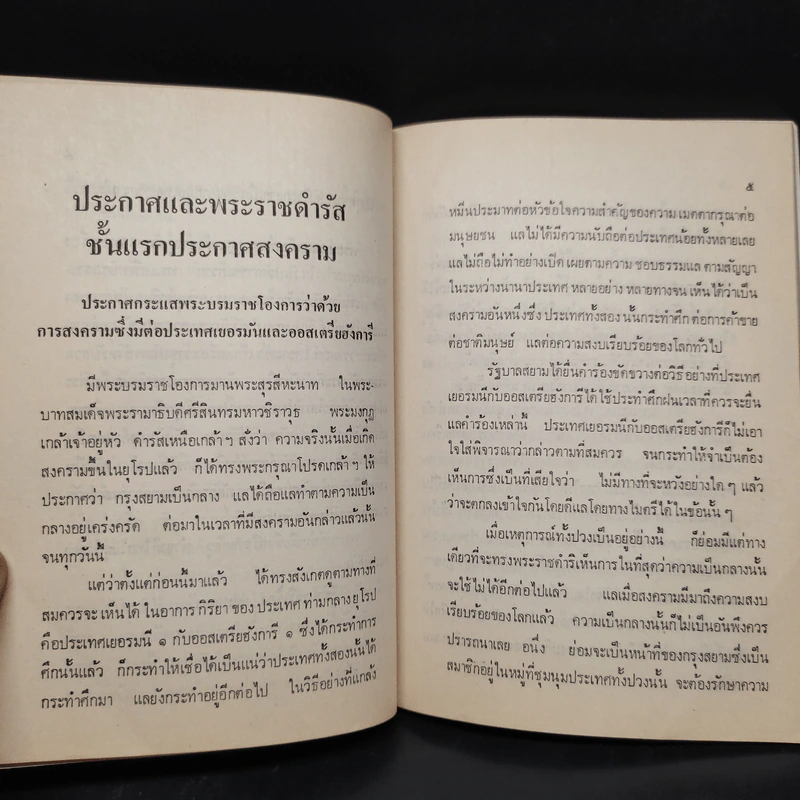 ประกาศและพระราชดำรัส
ชั้นแรกประกาศสงคราม
ประกาศกระแสพระบรมราชโองการว่าด้วย
การสงครามซึ่งมีต่อประเทศเยอรมันและออสเตรียฮังการี
มีพระบรมราชโองการมานพระสุรสีหะนาท ในพระ-
บาทสมเด็จพระรามาธิบดีศรีสินทรมหาวชิราวุธ พระมงกุฎ
เกล้าเจ้าอยู่หัว ดำรัสเหนือเกล้าฯ สั่งว่า ความจริงนั้นเมื่อเกิด
สงครามขึ้นในยุโรปแล้ว ก็ได้ทรงพระกรุณาโปรดเกล้าฯ ให้
ประกาศว่า กรุงสยามเป็นกลาง แลได้ถือแลทำตามความเป็น
กลางอยู่เคร่งครัด ต่อมาในเวลาที่มีสงครามอันกล่าวแล้วนั้น
จนทุกวันนี้
แต่ว่าตั้งแต่ก่อนนี้มาแล้ว ได้ทรงสังเกตดูตามทางที่
สมควรจะเห็นได้ ในอาการ กิริยา ของ ประเทศ ท่ามกลาง ยุโรป
คือประเทศเยอรมนี ๑ กับออสเตรียฮังการี ๑ ซึ่งได้กระทำการ
ศึกนั้นแล้ว ก็กระทำให้เชื่อได้เป็นแน่ว่าประเทศทั้งสองนั้นได้
กระทำศึกมา แลยังกระทำอยู่อีกต่อไป ในวิธีอย่างที่แกล้ง
๕
หมิ่นประมาทต่อหัวข้อใจความสำคัญของความ เมตตากรุณาต่อ
มนุษยชน แลไม่ได้มีความนับถือต่อประเทศน้อยทั้งหลายเลย
แลไม่ถือไม่ทำอย่างเปิด เผยตามความ ชอบธรรมแล ตามสัญญา
ในระหว่างนานาประเทศ หลายอย่าง หลายทางจน เห็นได้ว่าเป็น
สงครามอันหนึ่งซึ่ง ประเทศทั้งสอง นั้นกระทำศึก ต่อการค้าขาย
ต่อชาติมนุษย์ แลต่อความสงบเรียบร้อยของโลกทั่วไป
รัฐบาลสยามได้ยื่นคำร้องขัดขวางต่อวิธีอย่างที่ประเทศ
เยอรมนีกับออสเตรียฮังการีได้ใช้ประทำศึกฝนเวลาที่ควรจะยื่น
แลคำร้องเหล่านี้ ประเทศเยอรมนีกับออสเตรียฮังการีก็ไม่เอา
ใจใส่พิจารณาว่ากล่าวตามที่สมควร จนกระทำให้จำเป็นต้อง
เห็นการซึ่งเป็นที่เสียใจว่า ไม่มีทางที่จะหวังอย่างใด ๆ แล้ว
ว่าจะตกลงเข้าใจกันโดยดีแลโดยทางไมตรีได้ในข้อนั้น ๆ
เมื่อเหตุการณ์ทั้งปวงเป็นอยู่อย่างนี้ ก็ย่อมมีแต่ทาง
เดียวที่จะทรงพระราชดำริเห็นการในที่สุดว่าความเป็นกลางนั้น
จะใช้ไม่ได้อีกต่อไปแล้ว แลเมื่อสงครามมีมาถึงความสงบ
เรียบร้อยของโลกแล้ว ความเป็นกลางนั้นก็ไม่เป็นอันพึงควร
ปรารถนาเลย อนึ่ง ย่อมจะเป็นหน้าที่ของกรุงสยามซึ่งเป็น
สมาชิกอยู่ในหมู่ที่ชุมนุมประเทศทั้งปวงนั้น จะต้องรักษาความ